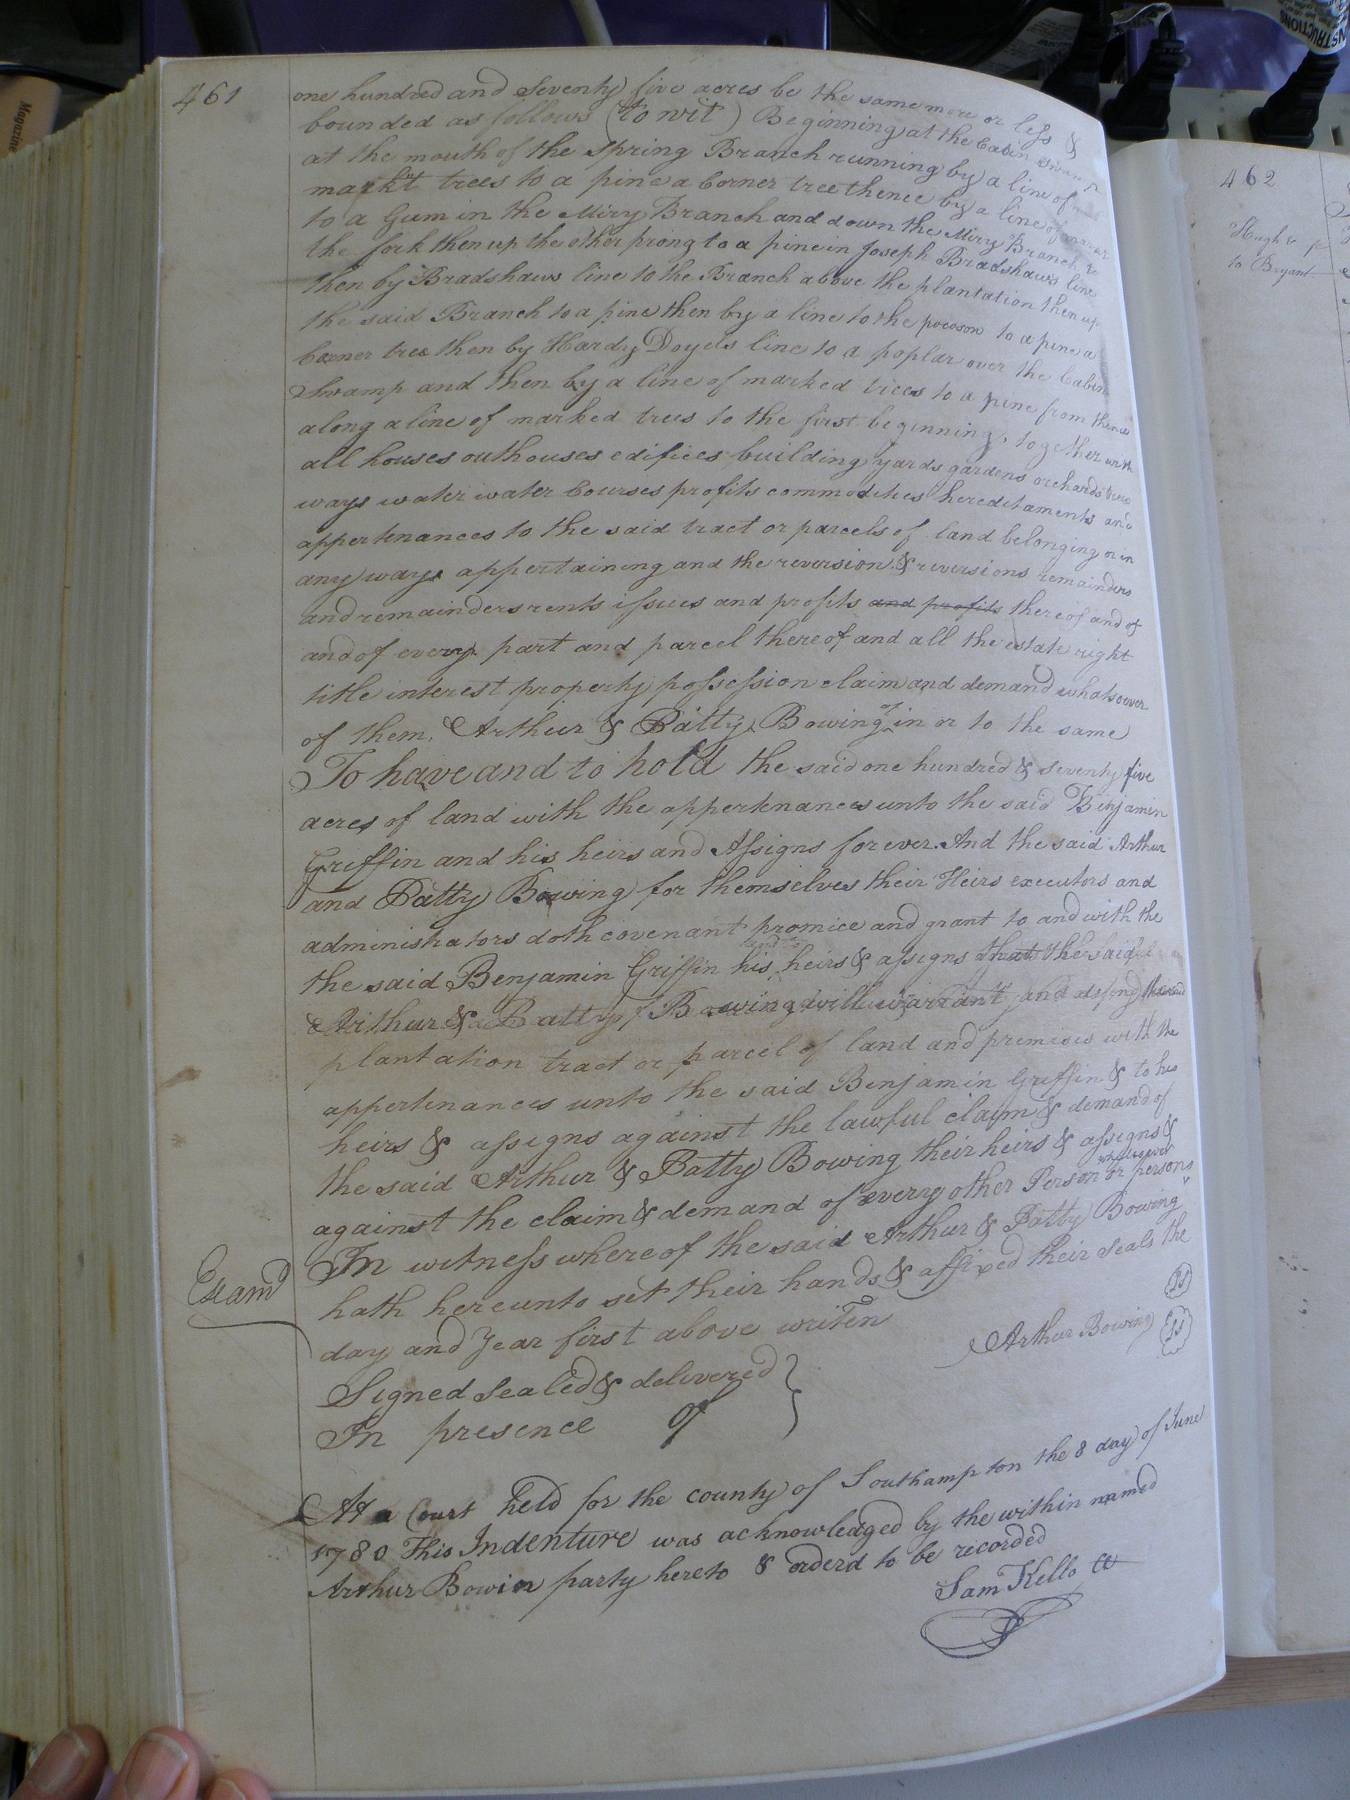 461
one hundred and Seventy five acres be the same more or less &
bounded as follows (to wit) Beginning at the Cabin Swamp
at the mouth of the Spring Branch running by a line of
markt trees to a pine a Corner tree thence by a line of markt
to a Gum in the Miry Branch and down the Miry Branch to
the fork then up the other prong to a pine in Joseph Bradshaws line
then by Bradshaws line to the Branch above the plantation then up
the said Branch to a pine then by a line to the pocoson to a pine a
Corner tree then by Hardy Doyels line to a poplar over the Cabin
Swamp and then by a line of marked trees to a pine from thence
along a line of marked trees to the first beginning, together with
all houses outhouses edifices building yards gardens orchards
ways water water Courses profits commodities hereditaments and
appertenances to the said tract or parcels of land belonging or in
any ways appertaining and the reversion & reversions remainders
and remainders rents issues and profits and profits thereof and of
and of every part and parcel thereof and all the estate right
title interest property possession claim and demand whatsoever
of them, Arthur & Patty Bowing of in or to the same
To have and to hold the said one hundred & seventy five
acres of land with the appertenances unto the said Binjamin
Griffin and his heirs and Assigns forever. And the said Arthur
and Patty Bowing for themselves their Heirs executors and
administrators doth covenant promice and grant to and with the
the said Benjamin Griffin his heirs & assigns that the said
Arthur & Patty Bowing will warrant and defend the said
plantation tract or parcel of land and premises with the
appertenances unto the said Benjamin Griffin & to his
heirs & assigns against the lawful claim & demand of
the said Arthur & Patty Bowing their heirs & assigns &
against the claim & demand of every other Person or persons whatsoever
In witness whereof the said Arthur & Patty Bowing
hath hereunto set their hands & affixed their Seals the
Exam'd
day and Year first above writen
Signed Sealed & delivered
In presence of
Arthur Bowing
LS
LS
At a Court held for the county of Southampton the 8 day of June
1780 This Indenture was acknowledged by the within named
Arthur Bowin party hereto & orderd to be recorded
Sam Kello Cl
462
to Bryant
Magazine